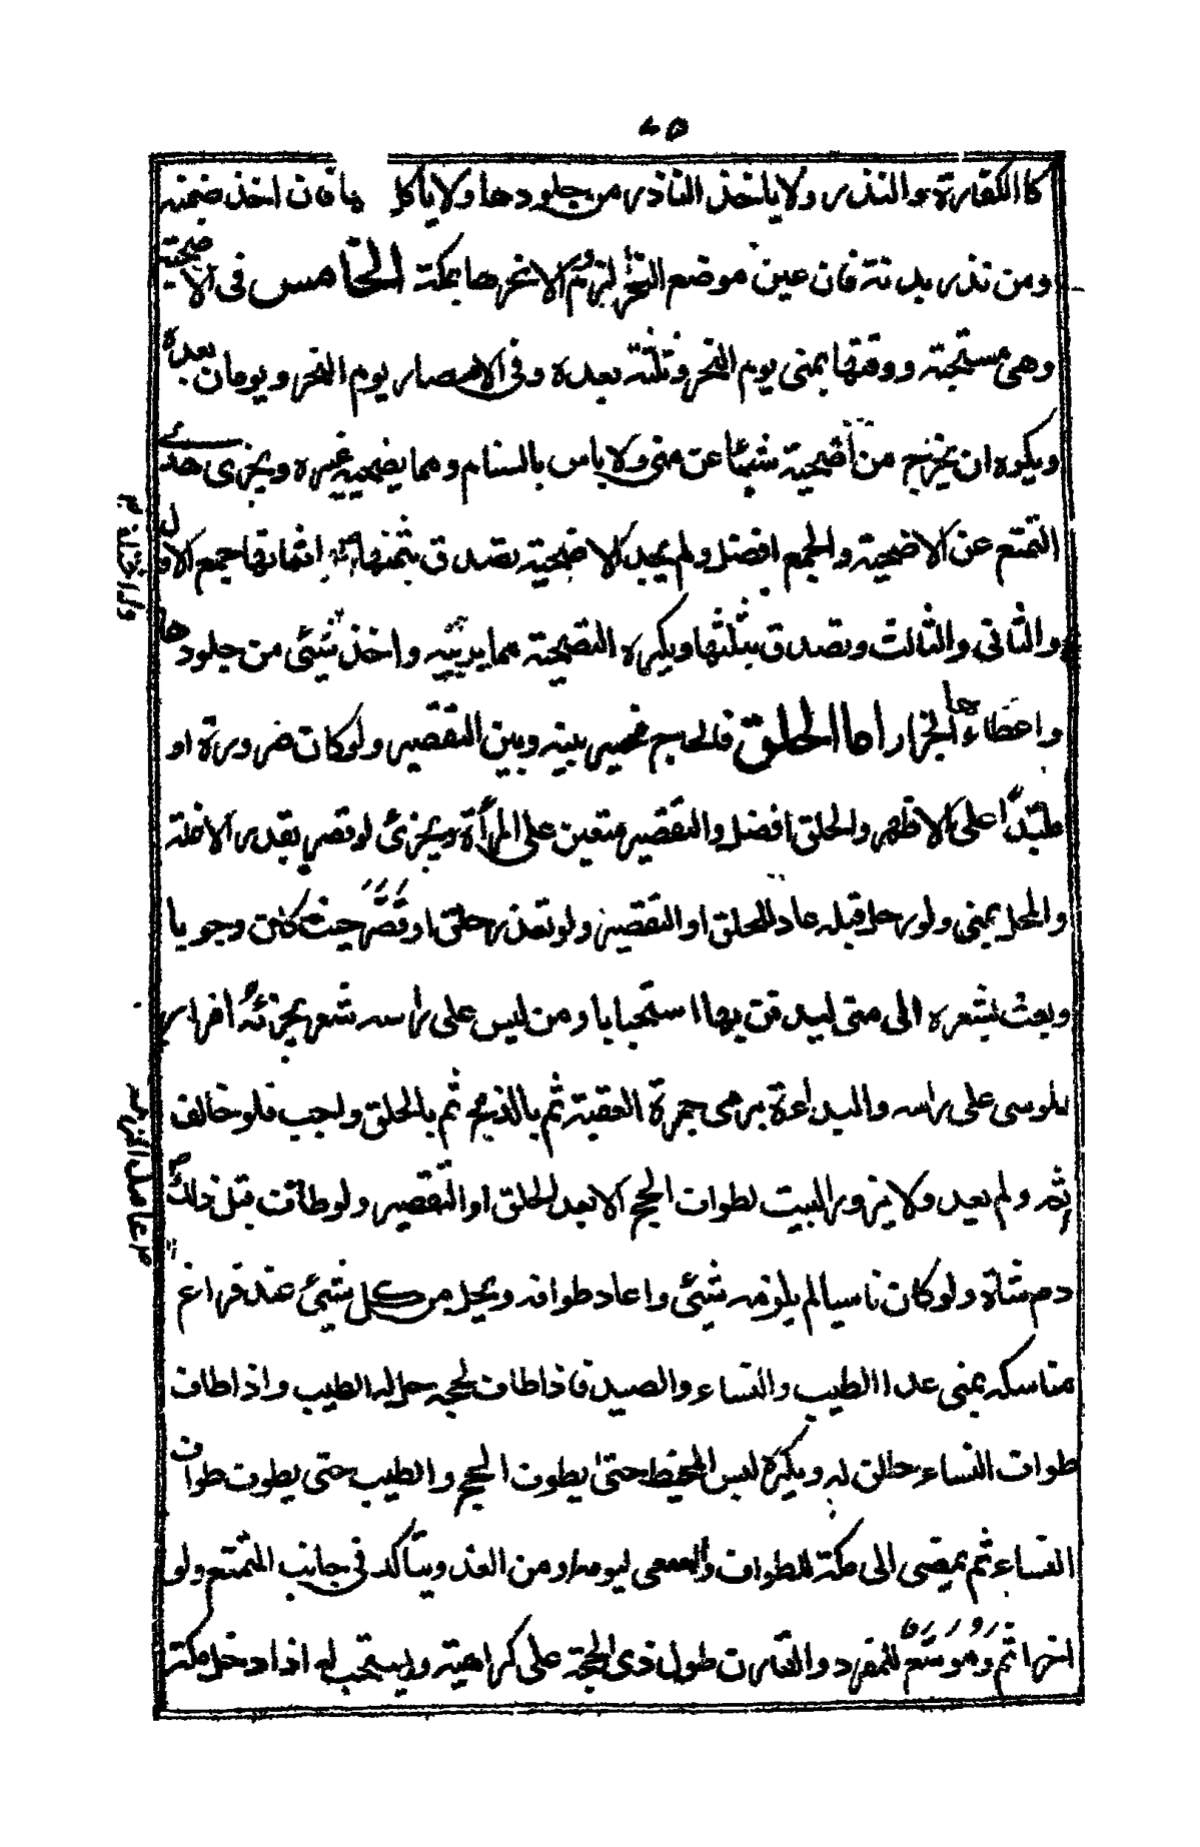 ٤٥
كالكفارة والنذر ولا ياخذ الناذر من جلودها ولا ياكل فان اخذ ضمنه
ومن نذر بدنة فان عين موضع النحر لزم والا نحرها بمكة الخامس فى الاضحية
وهى مستحبة ووقتها بمنى يوم النحر وثلثة بعده وفى الامصار يوم النحر ويومان بعده
ويكره ان يخرج من اضحية شيئا عن منى ولا باس بالسنام ومما يضحيه غيره ويجزى هدى
التمتع عن الاضحية والجمع افضل ولم يجد الاضحية تصدق بثمنها اثمانها جمع الاول
والثانى والثالث وتصدق بثلثها ويكره التضحية مما يربيه واخذ شئى من جلودها
واعطاءها الجزار اما الحلق فالحاج مخير بينه وبين التقصير ولو كان ضرورة او
ملبدا على الاظهر والحلق افضل والتقصير متعين على المرأة ويجزئ لو قصر بقدر الانملة
والمحل بمنى ولو رحل قبله عاد للحلق او التقصير ولو تعذر حلق او قصر حيث كان وجوبا
وبعث بشعره الى منى ليدفن بها استحبابا ومن ليس على راسه شعر يجزئه امرار
الموسى على راسه والبداءة برمى جمرة العقبة ثم بالذبح ثم بالحلق واجب فلو خالف
اثم ولم يعد ولا يزور البيت لطواف الحج الا بعد الحلق او التقصير ولو طاف قبل ذلك
دم شاة ولو كان ناسيا لم يلزمه شئى واعاد طوافه ويحل من كل شئى عند فراغ
مناسكه بمنى عدا الطيب والنساء والصيد فاذا طاف لحجه حل له الطيب واذا طاف
طواف النساء حللن له ويكره لبس المخيط حتى يطوف الحج والطيب حتى يطوف طواف
النساء ثم يمضى الى مكة للطواف والسعى ليومه او من الغد ويتأكد فى جانب المتمتع ولو
اخر اثم وموسع للمفرد والقارن طول ذى الحجة على كراهية ويستحب له اذا دخل مكة